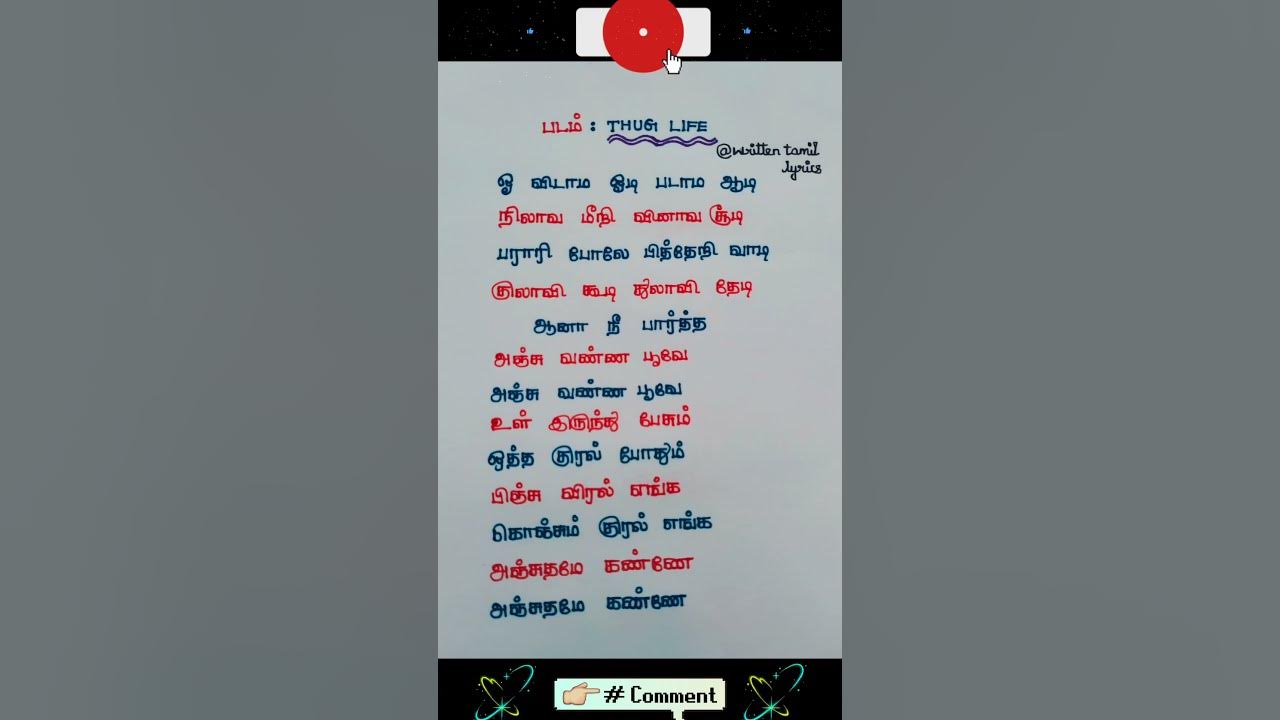 படம் : THUG LIFE
@written tamil
lyrics
ஓ விடாம ஓடி படாம ஆடி
நிலாவ மீறி வினாவ சூடி
பராரி போலே பித்தேறி வாடி
குலாவி கூடி துலாவி தேடி
ஆனா நீ பார்த்த
அஞ்சு வண்ண பூவே
அஞ்சு வண்ண பூவே
உள் இருந்து பேசும்
ஒத்த குரல் போதும்
பிஞ்சு விரல் எங்க
கொஞ்சும் குரல் எங்க
அஞ்சுதமே கண்ணே
அஞ்சுதமே கண்ணே
# Comment